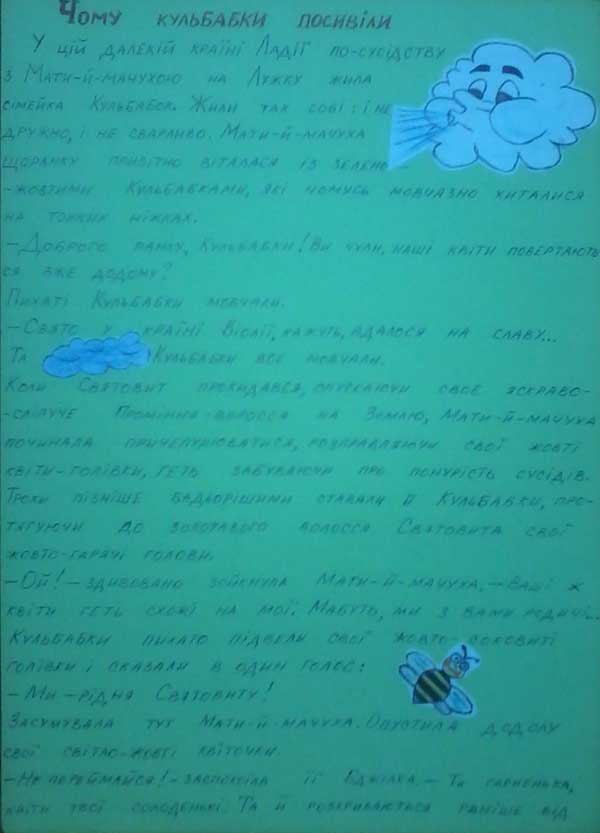 Чому кульбабки посивіли
У цій далекій країні Ладії по-сусідству
з Мати-й-мачухою на Лужку жила
сімейка Кульбабок. Жили так собі: і не
дружно, і не сварливо. Мати-й-мачуха
щоранку привітно віталася із зелено-
-жовтими Кульбабками, які чомусь мовчазно хиталися
на тонких ніжках.
-Доброго ранку, Кульбабки! Ви чули, наші квіти повертають-
ся вже додому?
Пихаті Кульбабки мовчали.
-Свято у країні Віолії, кажуть, вдалося на славу...
Та Кульбабки все мовчали.
Коли Святовит прокидався, опускаючи своє яскраво-
-сліпуче Проміння-волосся на Землю, Мати-й-мачуха
починала причепурюватися, розправляючи свої жовті
квіти-голівки, геть забуваючи про понурість сусідів.
Трохи пізніше бадьорішими ставали й Кульбабки, про-
тягуючи до золотавого волосся Святовита свої
жовто-гарячі голови.
-Ой! - здивовано зойкнула Мати-й-мачуха. - Ваші ж
квіти геть схожі на мої. Мабуть, ми з вами родичі...
Кульбабки пихато підвели свої жовто-соковиті
голівки і сказали в один голос:
-Ми - рідня Святовиту!
Засумувала тут Мати-й-мачуха. Опустила додолу
свої світло-жовті квіточки.
-Не переймайся! - заспокоїла її Бджілка. - Ти гарненька,
квіти твої солоденькі. Та й розкриваються раніше від